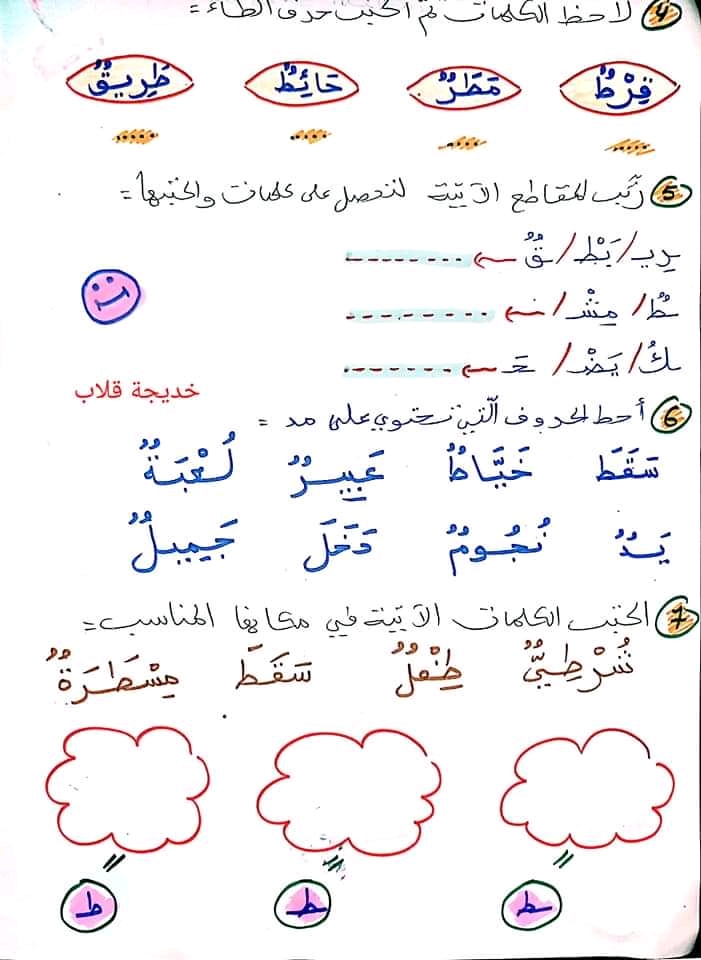 ④ لاحظ الكلمات ثم أكتب حرف الطاء =
قِرْطٌ مَطَرٌ حَائِطٌ طَرِيقٌ
..... .... .... .....
⑤ رَكّب المقاطع الآتية لتحصل على كلمات واكتبها =
رِيـ / بَطْـ / قٌ ← ........
ـطٌ / مِشْـ / ← ........
ـكُ / يَضْـ / حَـ ← .......
خديجة قلاب
⑥ أحط الحروف الّتي تحتوي على مد =
سَقَطَ خَيَّاطٌ عَبِيـرٌ لُعْبَةٌ
يَـدٌ نُجُـومٌ دَخَلَ جَمِيـلٌ
⑦ اكتب الكلمات الآتية في مكانها المناسب =
شُرْطِيٌّ طِفْلٌ سَقَطَ مِسْطَرَةٌ
ـط ـطـ ط